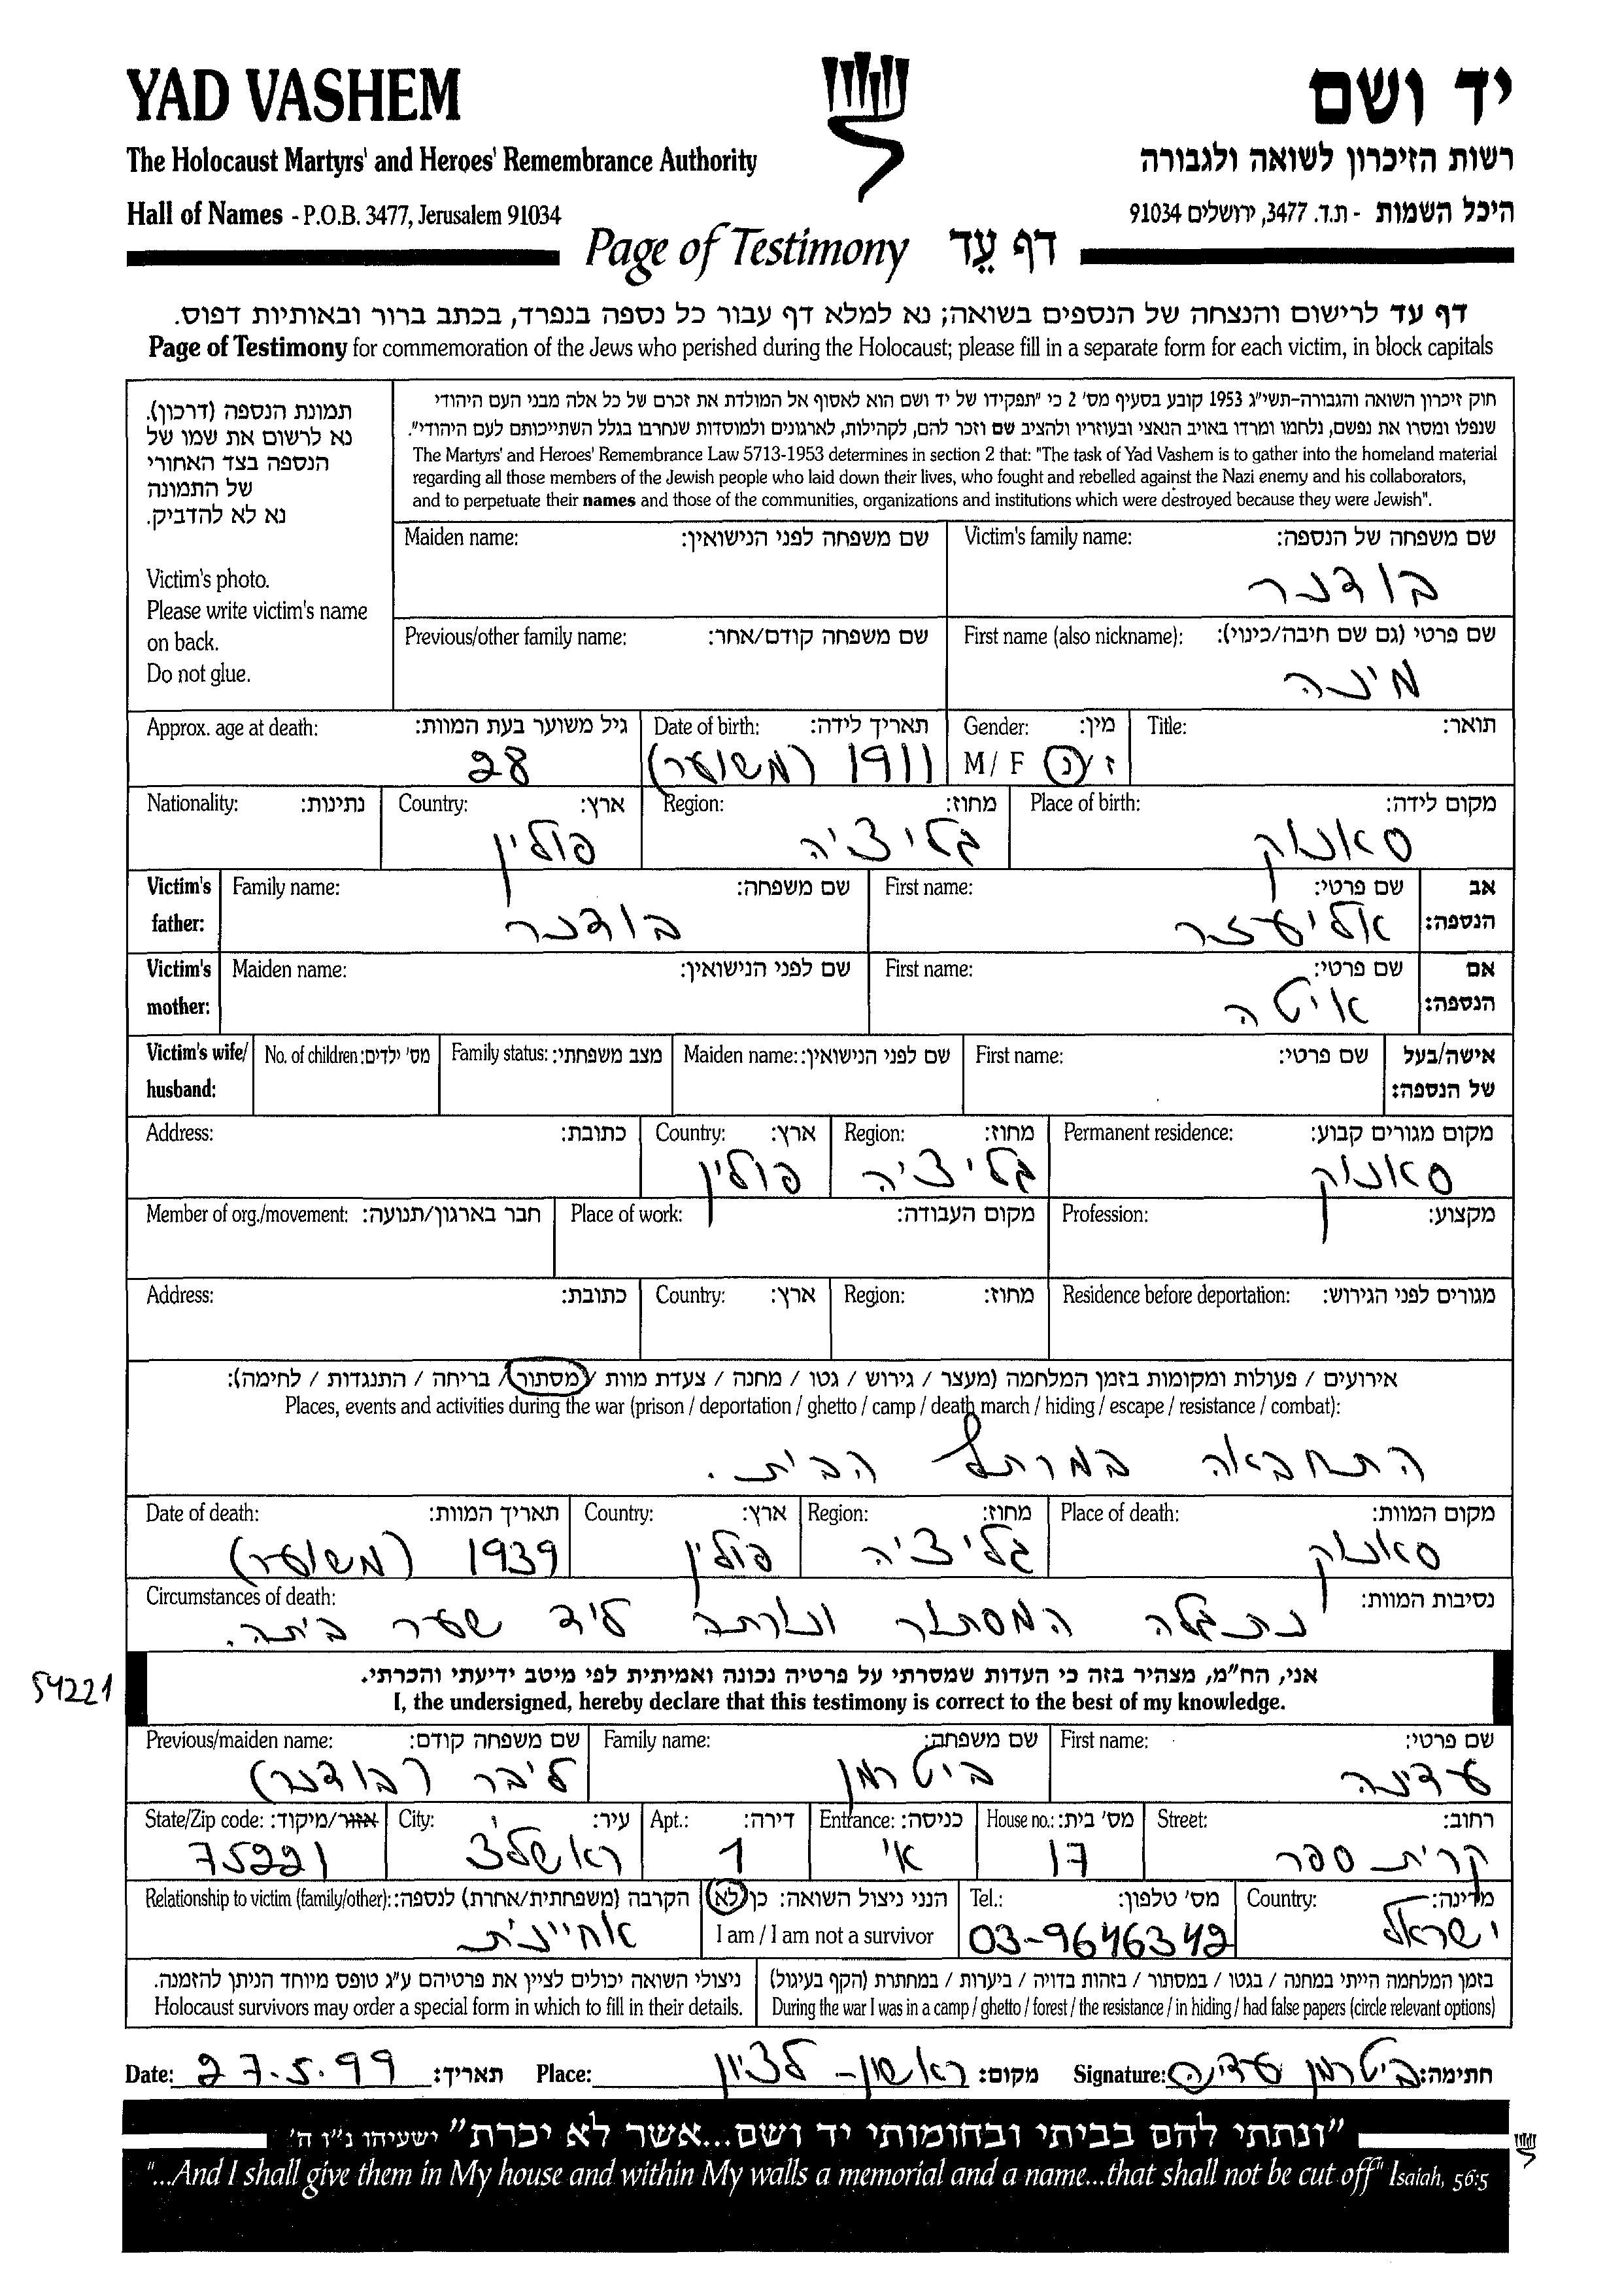 YAD VASHEM
יד ושם
The Holocaust Martyrs' and Heroes' Remembrance Authority
רשות הזיכרון לשואה ולגבורה
Hall of Names - P.O.B. 3477, Jerusalem 91034
היכל השמות - ת.ד. 3477, ירושלים 91034
Page of Testimony דף עֵד
דף עד לרישום והנצחה של הנספים בשואה; נא למלא דף עבור כל נספה בנפרד, בכתב ברור ובאותיות דפוס.
Page of Testimony for commemoration of the Jews who perished during the Holocaust; please fill in a separate form for each victim, in block capitals
תמונת הנספה (דרכון).
נא לרשום את שמו של
הנספה בצד האחורי
של התמונה
נא לא להדביק.
Victim's photo.
Please write victim's name
on back.
Do not glue.
חוק זיכרון השואה והגבורה-תשי"ג 1953 קובע בסעיף מס' 2 כי "תפקידו של יד ושם הוא לאסוף אל המולדת את זכרם של כל אלה מבני העם היהודי
שנפלו ומסרו את נפשם, נלחמו ומרדו באויב הנאצי ובעוזריו ולהציב שם וזכר להם, לקהילות, לארגונים ולמוסדות שנחרבו בגלל השתייכותם לעם היהודי".
The Martyrs' and Heroes' Remembrance Law 5713-1953 determines in section 2 that: "The task of Yad Vashem is to gather into the homeland material
regarding all those members of the Jewish people who laid down their lives, who fought and rebelled against the Nazi enemy and his collaborators,
and to perpetuate their names and those of the communities, organizations and institutions which were destroyed because they were Jewish".
Victim's family name: שם משפחה של הנספה:
בודנר
Maiden name: שם משפחה לפני הנישואין:
First name (also nickname): שם פרטי (גם שם חיבה/כינוי):
מינה
Previous/other family name: שם משפחה קודם/אחר:
Title: תואר:
Gender: מין:
M / F ז / נ
Date of birth: תאריך לידה:
1911 (משוער)
Approx. age at death: גיל משוער בעת המוות:
28
Place of birth: מקום לידה:
סאנוק
Region: מחוז:
גליציה
Country: ארץ:
פולין
Nationality: נתינות:
Victim's father: אב הנספה:
First name: שם פרטי:
אליעזר
Family name: שם משפחה:
בודנר
Victim's mother: אם הנספה:
First name: שם פרטי:
איטה
Maiden name: שם לפני הנישואין:
Victim's wife/ husband: אישה/בעל של הנספה:
First name: שם פרטי:
Maiden name: שם לפני הנישואין:
Family status: מצב משפחתי:
No. of children: מס' ילדים:
Permanent residence: מקום מגורים קבוע:
סאנוק
Region: מחוז:
גליציה
Country: ארץ:
פולין
Address: כתובת:
Profession: מקצוע:
Place of work: מקום העבודה:
Member of org./movement: חבר בארגון/תנועה:
Residence before deportation: מגורים לפני הגירוש:
Region: מחוז:
Country: ארץ:
Address: כתובת:
אירועים / פעולות ומקומות בזמן המלחמה (מעצר / גירוש / גטו / מחנה / צעדת מוות / מסתור / בריחה / התנגדות / לחימה):
Places, events and activities during the war (prison / deportation / ghetto / camp / death march / hiding / escape / resistance / combat):
התחבאה במרתף הבית.
Place of death: מקום המוות:
סאנוק
Region: מחוז:
גליציה
Country: ארץ:
פולין
Date of death: תאריך המוות:
1939 (משוער)
Circumstances of death: נסיבות המוות:
נתגלה המסתור ונורתה ליד שער ביתה.
54221
אני, הח"מ, מצהיר בזה כי העדות שמסרתי על פרטיה נכונה ואמיתית לפי מיטב ידיעתי והכרתי.
I, the undersigned, hereby declare that this testimony is correct to the best of my knowledge.
First name: שם פרטי:
עדינה
Family name: שם משפחה:
ביטרמן
Previous/maiden name: שם משפחה קודם:
ליבר (בודנר)
Street: רחוב:
קרית ספר
House no.: מס' בית:
17
Entrance: כניסה:
א'
Apt.: דירה:
1
City: עיר:
ראשל"צ
State/Zip code: אזור/מיקוד:
75221
Country: מדינה:
ישראל
Tel.: מס' טלפון:
03-9646342
הנני ניצול השואה: כן / לא
I am / I am not a survivor
Relationship to victim (family/other): הקרבה (משפחתית/אחרת) לנספה:
אחיינית
בזמן המלחמה הייתי במחנה / בגטו / במסתור / בזהות בדויה / ביערות / במחתרת (הקף בעיגול)
During the war I was in a camp / ghetto / forest / the resistance / in hiding / had false papers (circle relevant options)
ניצולי השואה יכולים לציין את פרטיהם ע"ג טופס מיוחד הניתן להזמנה.
Holocaust survivors may order a special form in which to fill in their details.
Date: 27.5.99 תאריך: Place: ראשון-לציון מקום: Signature: ביטרמן עדינה חתימה:
"ונתתי להם בביתי ובחומותי יד ושם...אשר לא יכרת" ישעיהו נ"ו ה'
"...And I shall give them in My house and within My walls a memorial and a name...that shall not be cut off" Isaiah, 56:5